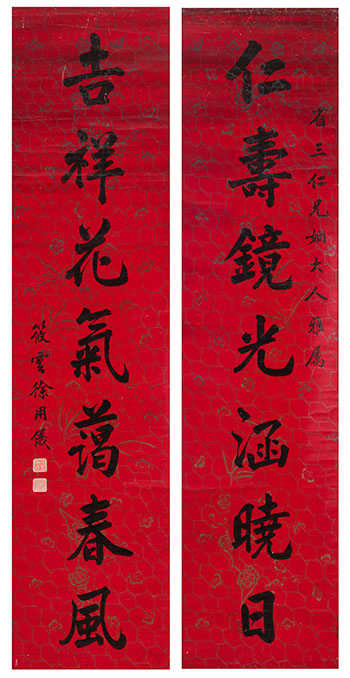 省三仁兄姻大人雅屬
仁壽鏡光涵曉日
吉祥花氣藹春風
筱雲徐用儀